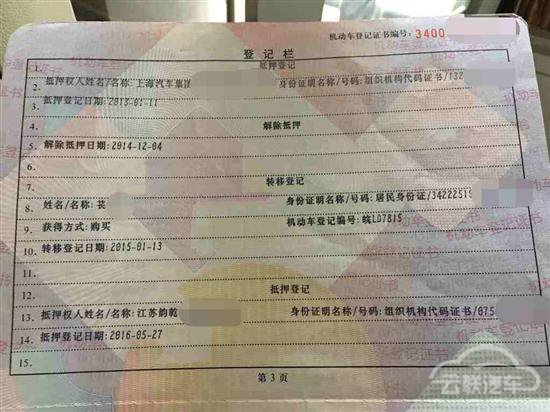 机动车登记证书编号: 3400
登记栏
1. 抵押登记
2. 抵押权人姓名/名称: 上海汽车集团 身份证明名称/号码: 组织机构代码证书/132
3. 抵押登记日期: 2013-01-11
4. 解除抵押
5. 解除抵押日期: 2014-12-04
6.
7. 转移登记
8. 姓名/名称: 身份证明名称/号码: 居民身份证/34222519
9. 获得方式: 购买 机动车登记编号: 皖LD7815
10. 转移登记日期: 2015-01-13
11.
12. 抵押登记
13. 抵押权人姓名/名称: 江苏韵乾 身份证明名称/号码: 组织机构代码证书/075
14. 抵押登记日期: 2016-05-27
15.
第 3 页
云联汽车